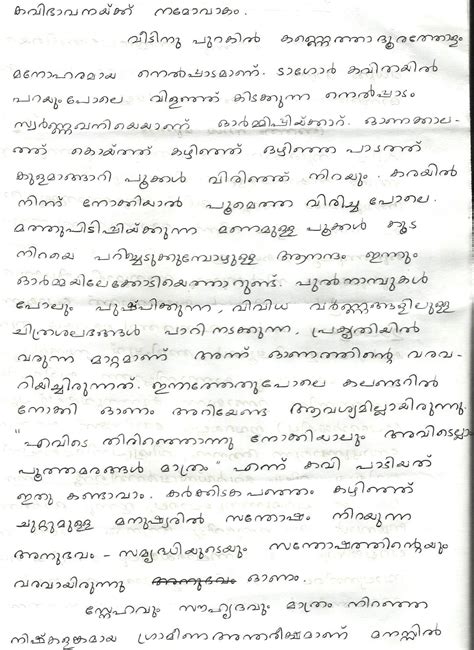 കവിഭാവനയ്ക്ക് നമോവാകം.
വീടിനു പുറകിൽ കണ്ണെത്താദൂരത്തോളം
മനോഹരമായ നെൽപ്പാടമാണ്. ടാഗോർ കവിതയിൽ
പറയുംപോലെ വിളഞ്ഞ് കിടക്കുന്ന നെൽപ്പാടം
സ്വർണ്ണഖനിയെയാണ് ഓർമ്മിപ്പിയ്ക്കാറ്. ഓണക്കാല-
ത്ത് കൊയ്ത്ത് കഴിഞ്ഞ് ഒഴിഞ്ഞ പാടത്ത്
കുളമാങ്ങാറി പൂക്കൾ വിരിഞ്ഞ് നിറയും. കരയിൽ
നിന്ന് നോക്കിയാൽ പൂമെത്ത വിരിച്ച പോലെ.
മത്തുപിടിപ്പിയ്ക്കുന്ന മണമുള്ള പൂക്കൾ കൂട
നിറയെ പറിച്ചടുക്കുമ്പോഴുള്ള ആനന്ദം ഇന്നും
ഓർമ്മയിലേക്കോടിയെത്താറുണ്ട്. പുൽനാമ്പുകൾ
പോലും പുഷ്പിക്കുന്ന, വിവിധ വർണ്ണങ്ങളിലുള്ള
ചിത്രശലഭങ്ങൾ പാറിനടക്കുന്ന, പ്രകൃതിയിൽ
വരുന്ന മാറ്റമാണ് അന്ന് ഓണത്തിന്റെ വരവ-
റിയിച്ചിരുന്നത്. ഇന്നത്തേതുപോലെ കലണ്ടറിൽ
നോക്കി ഓണം അറിയേണ്ട ആവശ്യമില്ലായിരുന്നു.
"എവിടെ തിരിഞ്ഞൊന്നു നോക്കിയാലും അവിടെല്ലാം
പൂത്തമരങ്ങൾ മാത്രം" എന്ന് കവി പാടിയത്
ഇതു കണ്ടാവാം. കർക്കിടകപഞ്ഞം കഴിഞ്ഞ്
ചുറ്റുമുള്ള മനുഷ്യരിൽ സന്തോഷം നിറയുന്ന
അനുഭവം - സമൃദ്ധിയുടെയും സന്തോഷത്തിന്റെയും
വരവായിരുന്നു അനുഭവം ഓണം.
സ്നേഹവും സൗഹൃദവും മാത്രം നിറഞ്ഞ
നിഷ്കളങ്കമായ ഗ്രാമീണഅന്തരീക്ഷമാണ് മനസ്സിൽ